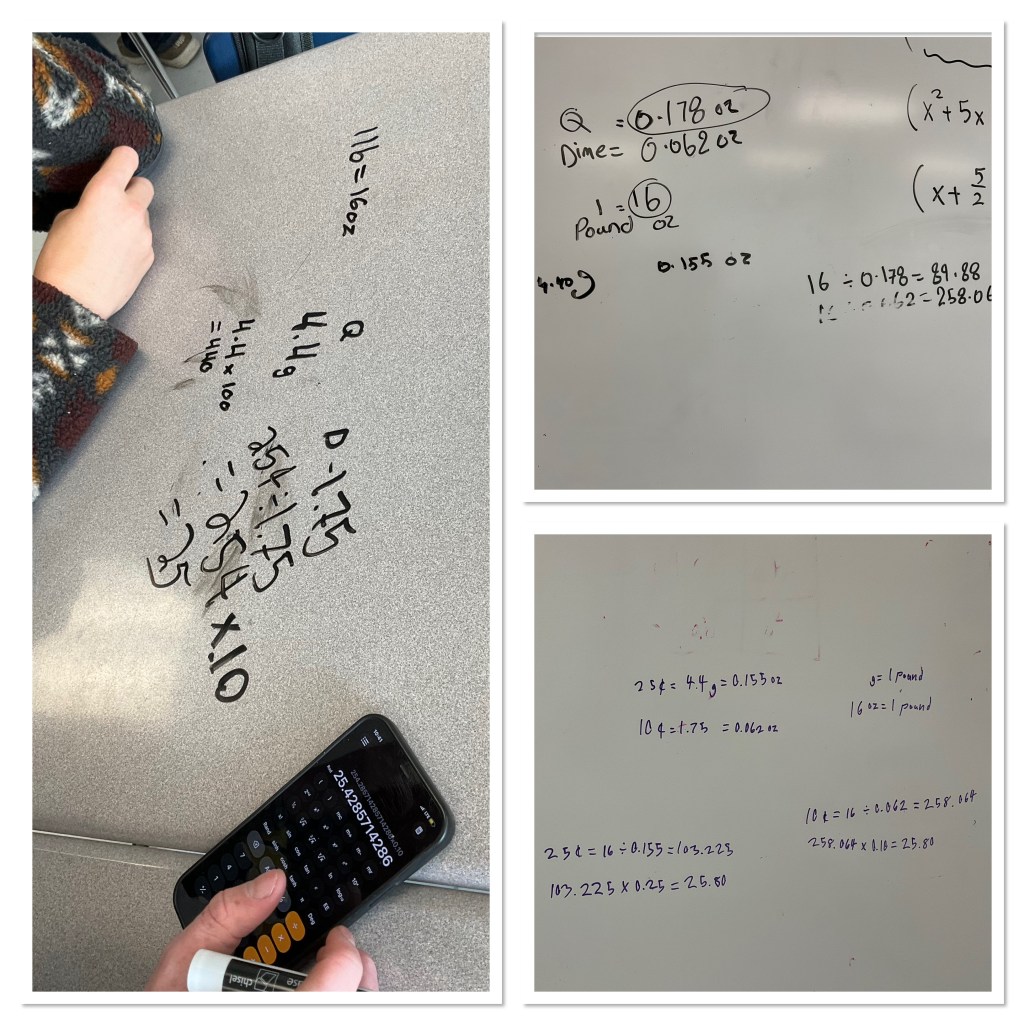 1lb = 16oz
Q
4.4g
4.4 × 100
= 440
D - 1.75
254 ÷ 1.75
254 × 1.10
10:41
254.285714285714286×0.10
25.4285714286
chisel
Q = 0.178 oz
Dime = 0.062 oz
1 = 16
Pound oz
0.155 oz
4.40g
(x² + 5x
(x + 5/2
16 ÷ 0.178 = 89.88
62 = 258.06
25¢ = 4.4g = 0.155 oz
10¢ = 1.75 = 0.062 oz
g = 1 pound
16 oz = 1 pound
10¢ = 16 ÷ 0.062 = 258.064
258.064 × 0.10 = 25.80
25¢ = 16 ÷ 0.155 = 103.225
103.225 × 0.25 = 25.80